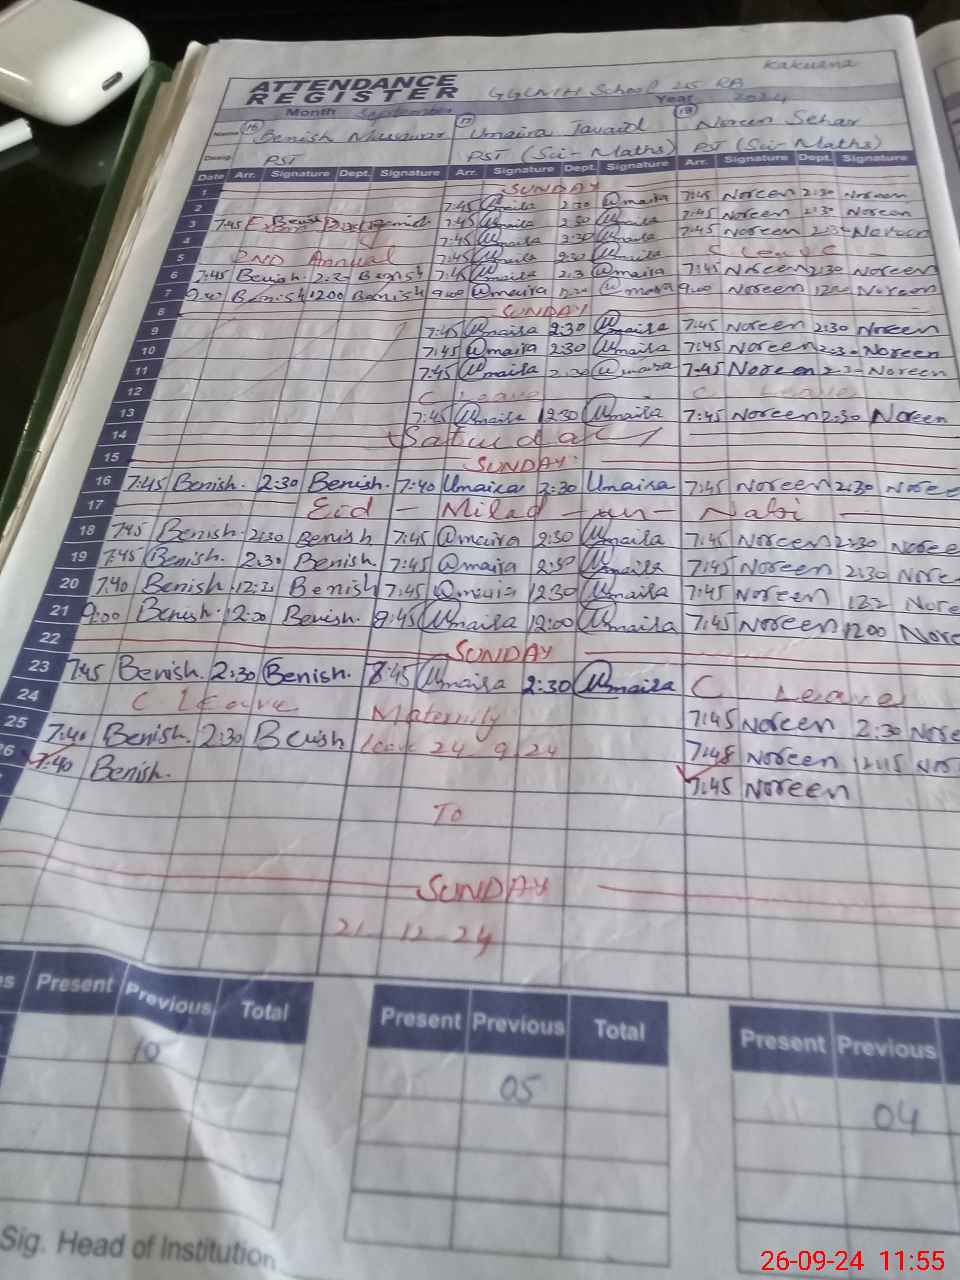 Kakuana
ATTENDANCE REGISTER GGCMH School 215 RB
Month September Year 2024
Name (16) Benish (17) Umaira Javaid (18) Noreen Sehar
Desig. PST PST (Sci-Maths) PST (Sci-Maths)
Date Arr. Signature Dept. Signature Arr. Signature Dept. Signature Arr. Signature Dept. Signature
1 SUNDAY
2 7:45 Umaira 2:30 Umaira 7:45 Noreen 2:30 Noreen
3 7:45 7:45 Umaira 2:30 Umaira 7:45 Noreen 2:30 Noreen
4 7:45 Umaira 2:30 Umaira 7:45 Noreen 2:3- Noreen
5 2ND Annual 7:45 Umaira 2:30 Umaira S Leave
6 7:45 Benish. 2:3- Benish 7:45 Umaira 2:3 Umaira 7:45 Noreen 2:30 Noreen
7 9:00 Benish 1200 Benish 9:00 Umaira Umaira 9:00 Noreen Noreen
8 SUNDAY
9 7:45 Umaira 2:30 Umaira 7:45 Noreen 2:30 Noreen
10 7:45 Umaira 2:30 Umaira 7:45 Noreen 2:3- Noreen
11 7:45 Umaira 2:30 Umaira 7:45 Noreen 2:3- Noreen
12 C Leave C Leave
13 7:45 Umaira 12:30 Umaira 7:45 Noreen 2:30 Noreen
14 Saturday
15 SUNDAY
16 7:45 Benish. 2:30 Benish. 7:40 Umaira 2:30 Umaira 7:45 Noreen 2:30 Noree
17 Eid - Milad - un - Nabi
18 7:45 Benish. 2:30 Benish 7:45 Umaira 2:30 Umaira 7:45 Noreen 2:30 Noree
19 7:45 Benish. 2:30 Benish. 7:45 Umaira 2:30 Umaira 7:45 Noreen 2:30 Nore
20 7:40 Benish Benish 7:45 Umaira 12:30 Umaira 7:45 Noreen Nore
21 9:00 Benish. Benish. 8:45 Umaira 12:00 Umaira 7:45 Noreen 1200 Nore
22 SUNDAY
23 7:45 Benish. 2:30 Benish. 8:45 Umaira 2:30 Umaira C Leave
24 C Leave Maternity 7:45 Noreen 2:30 Nore
25 7:40 Benish. 2:30 Benish leave 24 9 24 7:45 Noreen 12:15 Nor
6 7:40 Benish. 7:45 Noreen
To
SUNDAY
21 12 24
es Present Previous Total Present Previous Total Present Previous
10 05 04
Sig. Head of Institution
26-09-24 11:55